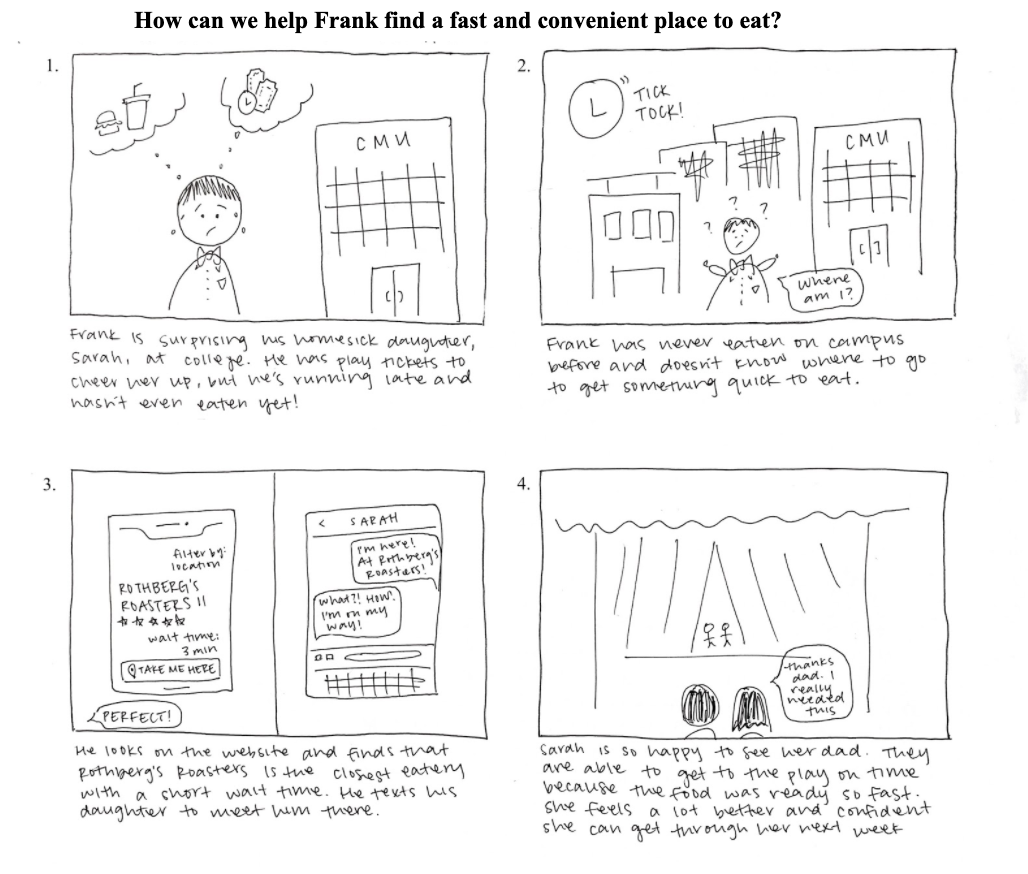 How can we help Frank find a fast and convenient place to eat?
1.
CMU
Frank is surprising his homesick daughter,
Sarah, at college. He has play tickets to
cheer her up, but he's running late and
hasn't even eaten yet!
2.
TICK
TOCK!
CMU
? ? ?
Where
am I?
Frank has never eaten on campus
before and doesn't know where to go
to get something quick to eat.
3.
filter by:
location
ROTHBERG'S
ROASTERS II
wait time:
3 min
TAKE ME HERE
PERFECT!
< SARAH
I'm here!
At Rothberg's
Roasters!
What?! How?
I'm on my
way!
He looks on the website and finds that
Rothberg's Roasters is the closest eatery
with a short wait time. He texts his
daughter to meet him there.
4.
thanks
dad. I
really
needed
this
Sarah is so happy to see her dad. They
are able to get to the play on time
because the food was ready so fast.
She feels a lot better and confident
she can get through her next week